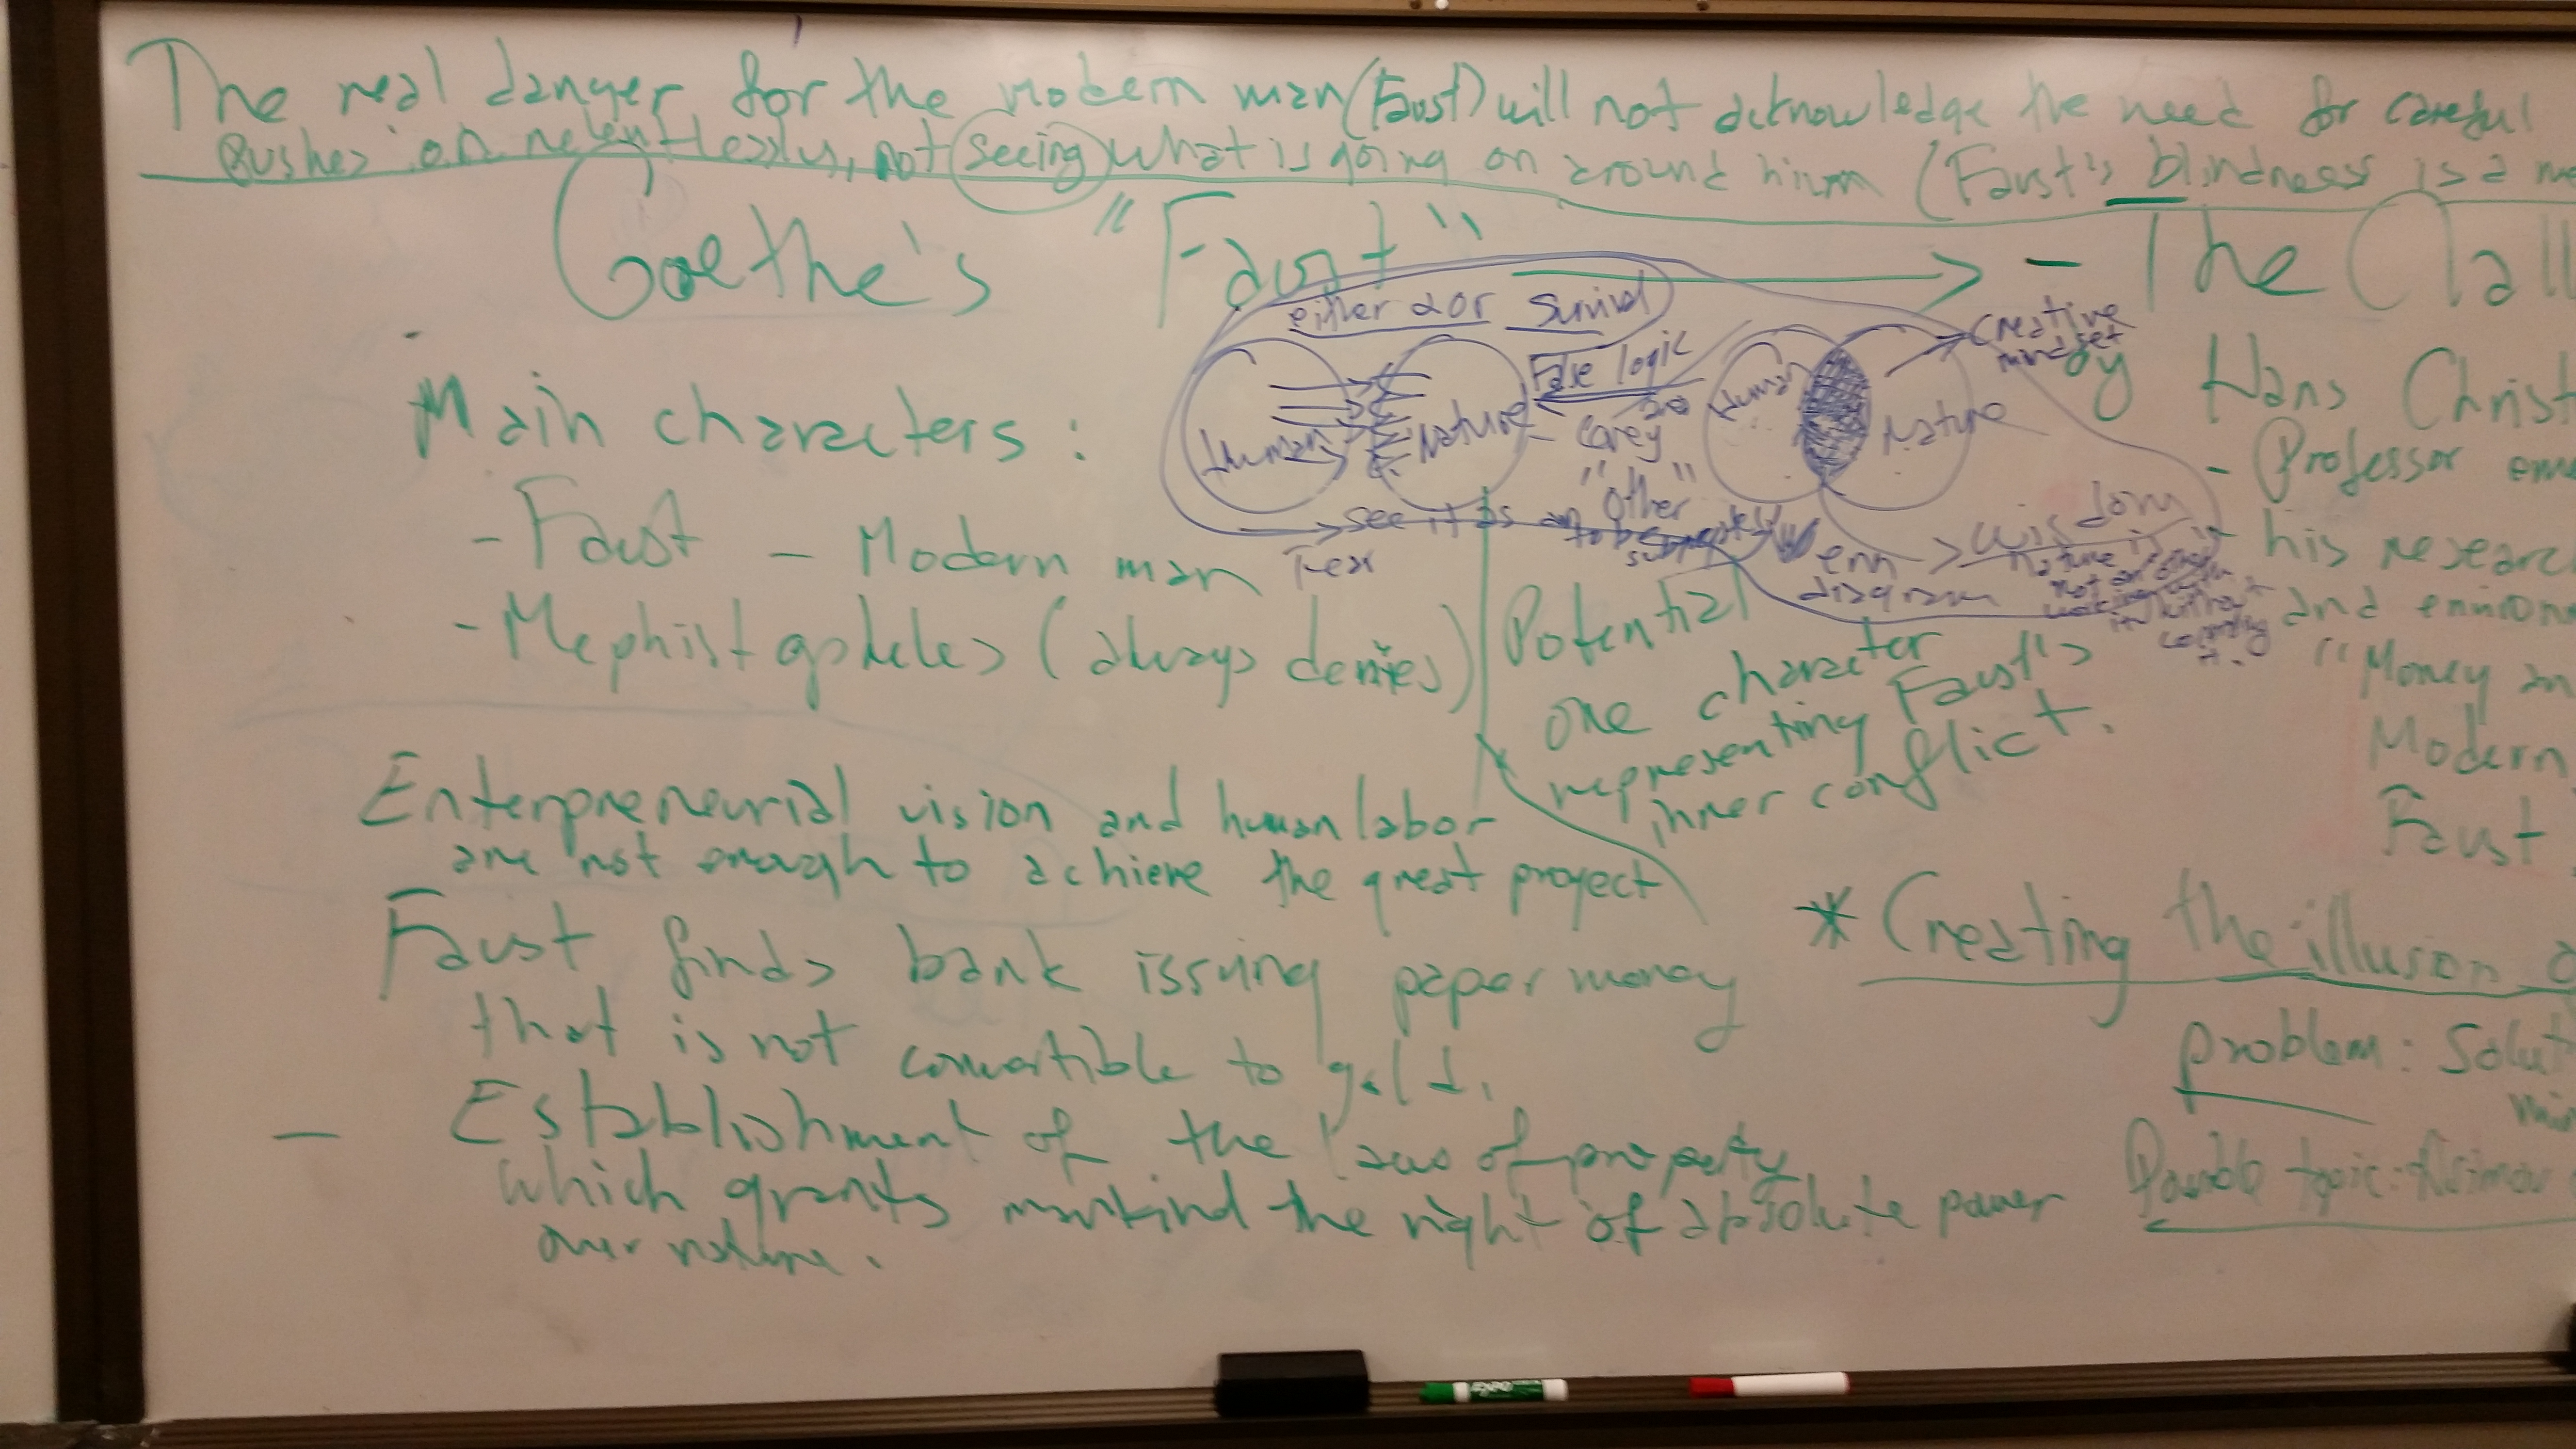 The real danger for the modern man (Faust) will not acknowledge the need for careful
Pushes on relentlessly, not seeing what is going on around him (Faust's blindness is a
Goethe's "Faust" → - The
either or Survival
Human Nature
False logic
Carey
"Other"
see it as an
to be
Fear
Human Nature
Creative
mindset
Venn
diagram
→ wisdom
nature is
Main characters:
- Faust - Modern man
- Mephistopheles (always denies)
Potential
one character
representing Faust's
inner conflict.
Enterpreneurial vision and human labor
are not enough to achieve the great project
Faust finds bank issuing paper money
that is not convertible to gold.
- Establishment of the laws of property
which grants mankind the right of absolute power
over nature.
by Hans Christ
- Professor
- his research
and
"Money
Modern
Faust
* Creating the illusion
problem:
topic:
EXPO